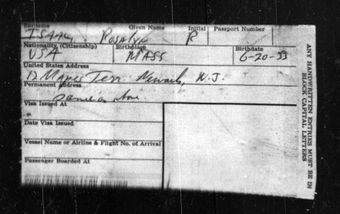 Surname Given Name Initial Passport Number
ISAAC, ROSALYN R
Nationality (Citizenship) Birthplace
USA MASS 6-20-33
United States Address
12 Mapes Terr. Newark, N.J.
Permanent Address
same as above
Visa Issued At
Date Visa Issued
Vessel Name or Airline & Flight No. of Arrival
Passenger Boarded At
ANY HANDWRITTEN ENTRIES MUST BE IN
BLOCK CAPITAL LETTERS